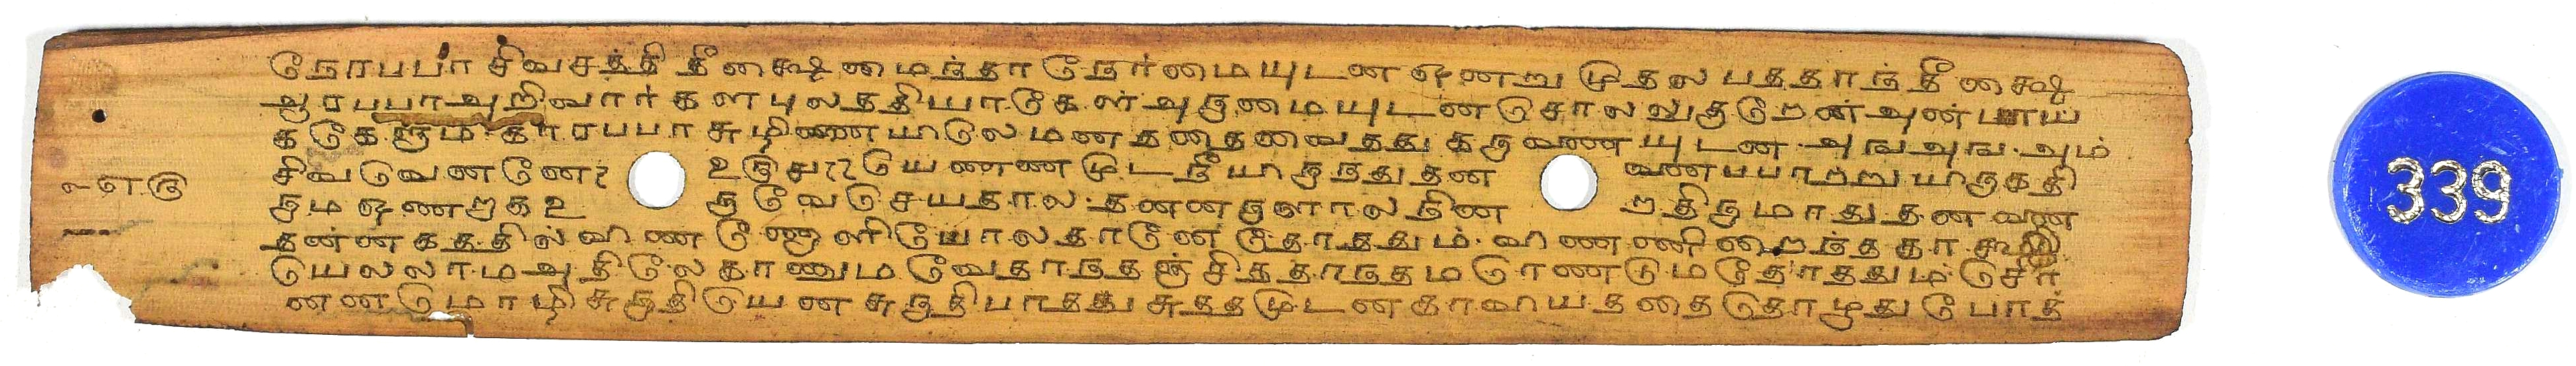 நேரபபா சிவசத்தி தீகைஷ மைந்தா நேர்மையுடன ஒனறு முதல பத்தாந் தீகைஷ
ஆரபபா அறிவார்கள புலத்தியா கேள் அருமையுடன சொலலுகுறேன் அன்பாய்
கடுகளும காரபபா சுழிணையிலே மனததை வைத்து கருவணையுடன அங அங அம்
சிவ வெனனே உருவு யெணண முட நீயிருந்து தன வணபபாறறுயிருகதி
கும ஒணறுக உ குவே செயதால தனனருளால நின றதிகுமாது தன வண
தன்ன கததில் விண ணொளி போல தானே தோத்தும் விணணிறைந்த கா
யெலலாம அதிலே காணும வேதாநதஞ் சித்தாநதம ரெண்டும தோத்தும் சேர்
னன மொழி சுருதியென சுருதி பாதது சுததமுடன காவியததை தொழுது போத்
௱௭௫
339